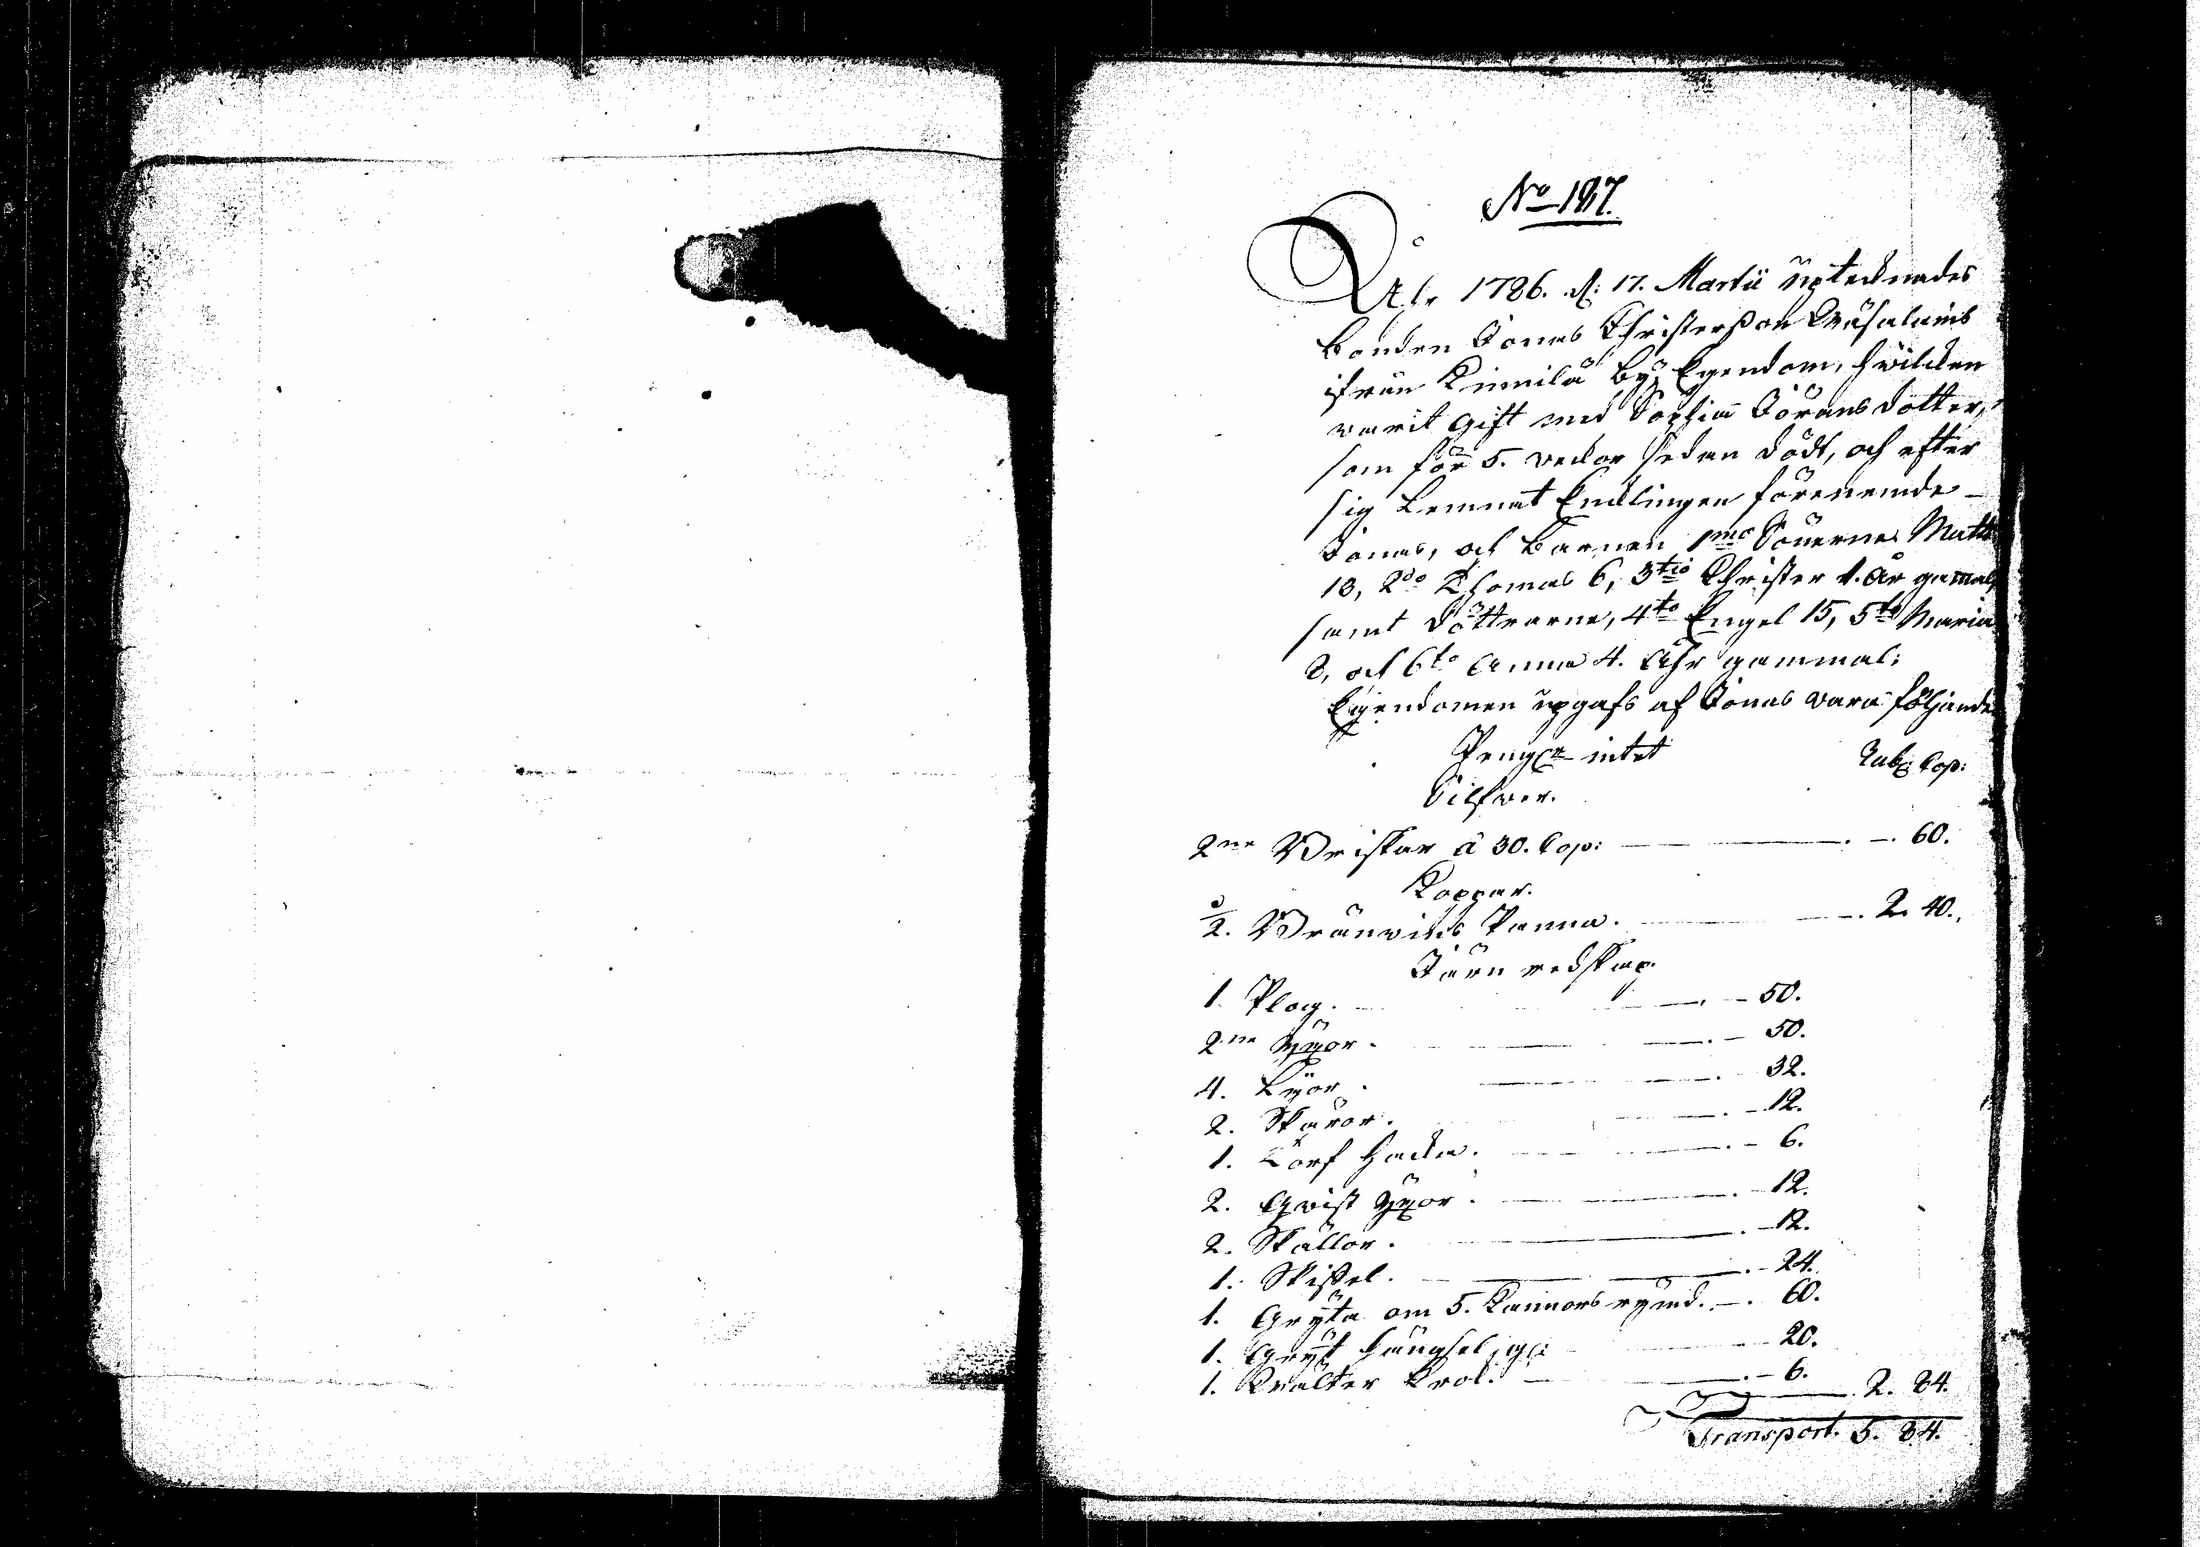 No 187.
Åhr 1786. d: 17. Martii upteknades
bonden Jonas Christersson Wäsalains
ifrån Kimilä by Egendom, hwilken
warit gift med Sophia Jörans dotter,
som för 5. wekor sedan dödt, och efter
sig Lemnat Encklingen förenemde
Jonas, och barnen 1mo Sönerne Matts
13, 2do Thomas 6, 3tio Christer 1. År gammal,
samt döttrarne, 4to Engel 15, 5to Maria
8, och 6to Anna 4. Åhr gammal:
Egendomen upgafs af Jonas wara följande
Peng:r intet Rub: Cop:
Silfwer.
2ne Briskar â 30. Cop: 60.
Koppar.
2. Bränwins Panna. 2. 40.
Järn redskap
1. Plog. 50.
2ne Yxor. 50.
4. Lijor. 32.
2. Skäror. 12.
1. Torf hacka. 6.
2. Qvist Yxor. 12.
2. Skällor. 12.
1. Skissel. 24.
1. Gryta om 5. Kannors rymd. 60.
1. Gryt hängsel 20.
1. Krok. 6.
2. 84.
Transport. 5. 84.